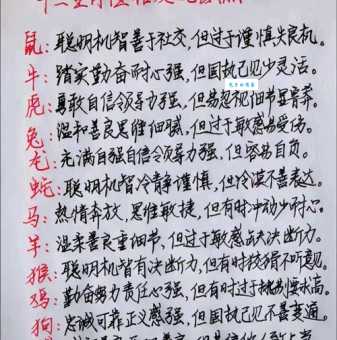 鼠：聪明机智善于社交，但过于谨慎失良机。
牛：踏实勤奋耐心强，但固执己见少灵活。
虎：勇敢自信领导力强，但易忽视细节显鲁莽。
兔：温和善良思维细腻，但过于敏感易受伤。
龙：充满自强自信领导力强，但容易自负。
蛇：聪明机智冷静谨慎，但冷漠不善表达。
马：热情奔放，思维敏捷，但有时冲动少耐心。
羊：温柔善良重细节，但过于敏感缺决断力。
猴：聪明机智有决断力，但有时狡猾不听意见。
鸡：勤奋努力责任心强，但有时过于挑剔要求高。
狗：忠诚可靠正义感强，但固执己见不善变通。